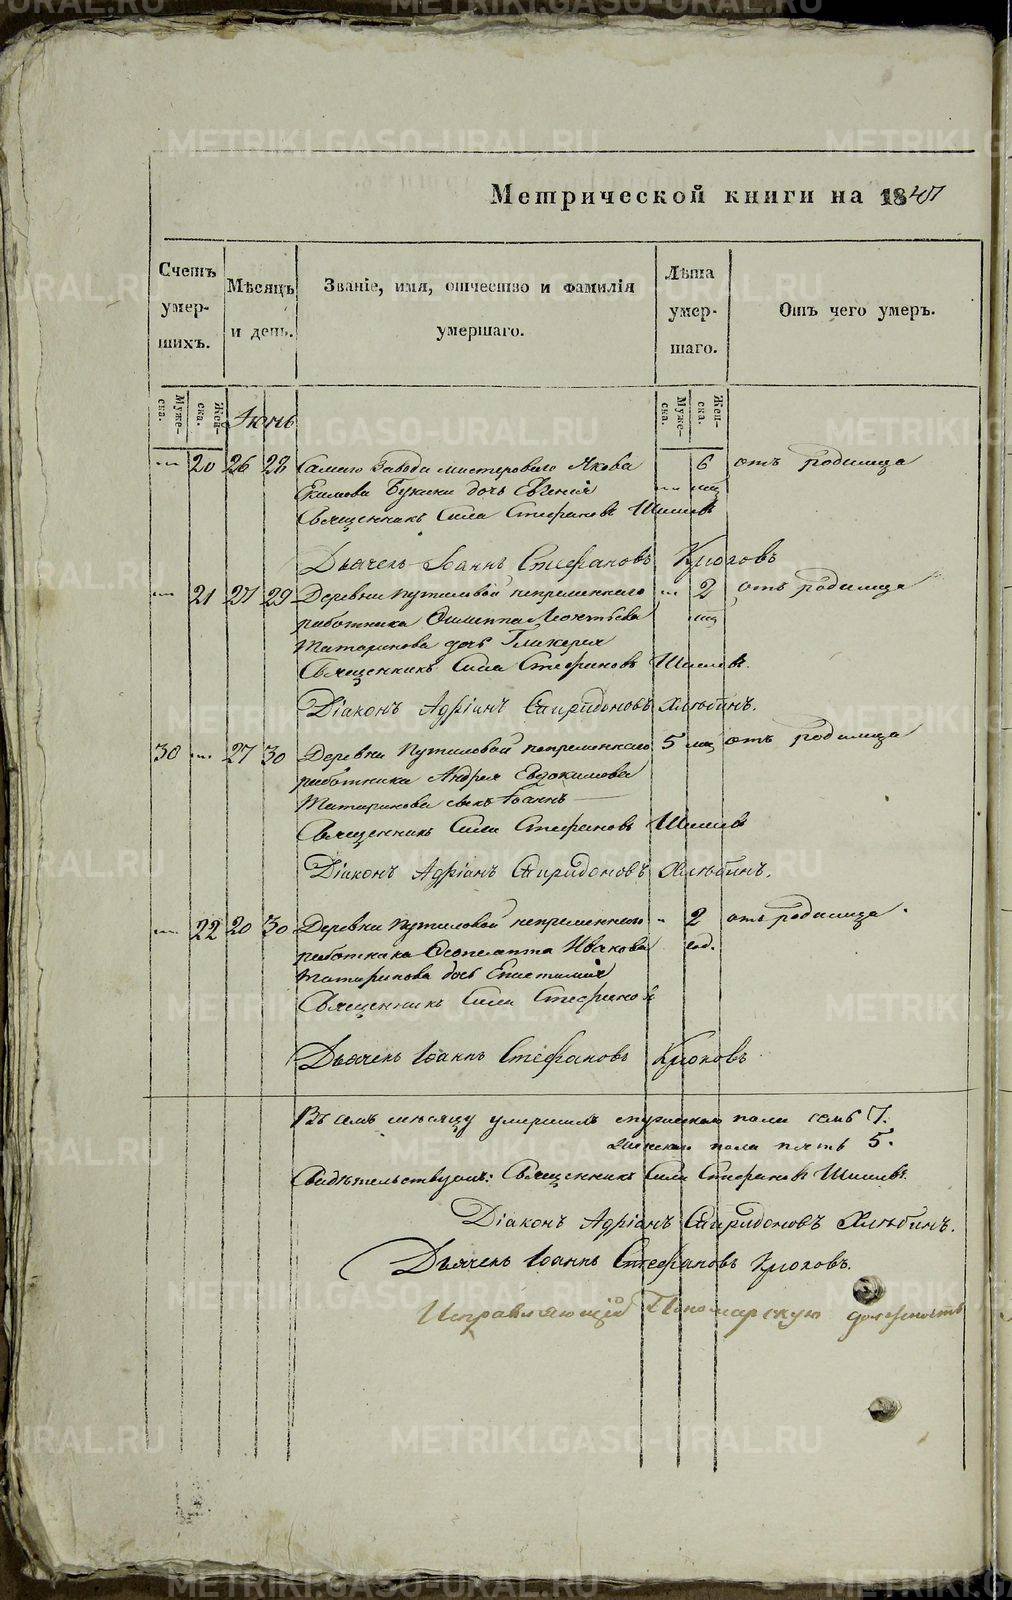 METRIKI.GASO-URAL.RU
Метрической книги на 1847
Счетъ умер-шихъ.
Мѣсяцъ и день.
Званіе, имя, отчество и фамилія умершаго.
Лѣта умер-шаго.
Отъ чего умеръ.
Муже-ска.
Жен-ска.
Муже-ска.
Жен-ска.
Июнь
20 26 28 Самаго Завода мастероваго Якова 6 отъ родимца
Екимова дочь Евгенія мц
Священникъ Сила Стефановъ Шишевъ
Дьячекъ Іоаннъ Стефановъ Крюковъ
21 27 29 Деревни Путиловой непременнаго 2 отъ родимца
работника Филиппа Леонтьева мц
Татаринова дочь Гликерия
Священникъ Сила Стефановъ Шишевъ.
Діаконъ Адріанъ Спиридоновъ Хлюбинъ.
30 27 30 Деревни Путиловой непременнаго 5 мц отъ родимца
работника Андрея Евдокимова
Татаринова сынъ Іоаннъ
Священникъ Сила Стефановъ Шишевъ
Діаконъ Адріанъ Спиридоновъ Хлюбинъ.
22 20 30 Деревни Путиловой непременнаго 2 отъ родимца.
работника Феопемпта Ивакова год.
Татаринова дочь Епистимия
Священникъ Сила Стефановъ
Дьячекъ Іоаннъ Стефановъ Крюковъ
Въ семъ месяцу умершихъ мужеска пола семь 7.
женска пола пять 5.
Свидѣтельствуемъ: Священникъ Сила Стефановъ Шишевъ.
Діаконъ Адріанъ Спиридоновъ Хлюбинъ.
Дьячекъ Іоаннъ Стефановъ Крюковъ.
Исправляющій Пономарскую должность